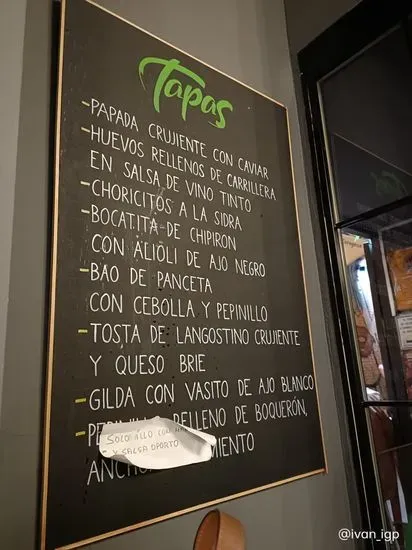 Tapas
-PAPADA CRUJIENTE CON CAVIAR
-HUEVOS RELLENOS DE CARRILLERA
EN SALSA DE VINO TINTO
-CHORICITOS A LA SIDRA
-BOCATITA DE CHIPIRON
CON ALIOLI DE AJO NEGRO
-BAO DE PANCETA
CON CEBOLLA Y PEPINILLO
-TOSTA DE LANGOSTINO CRUJIENTE
Y QUESO BRIE
-GILDA CON VASITO DE AJO BLANCO
- RELLENO DE BOQUERÓN,
SOLOMILLO CON
Y SALSA OPORTO
@ivan_igp